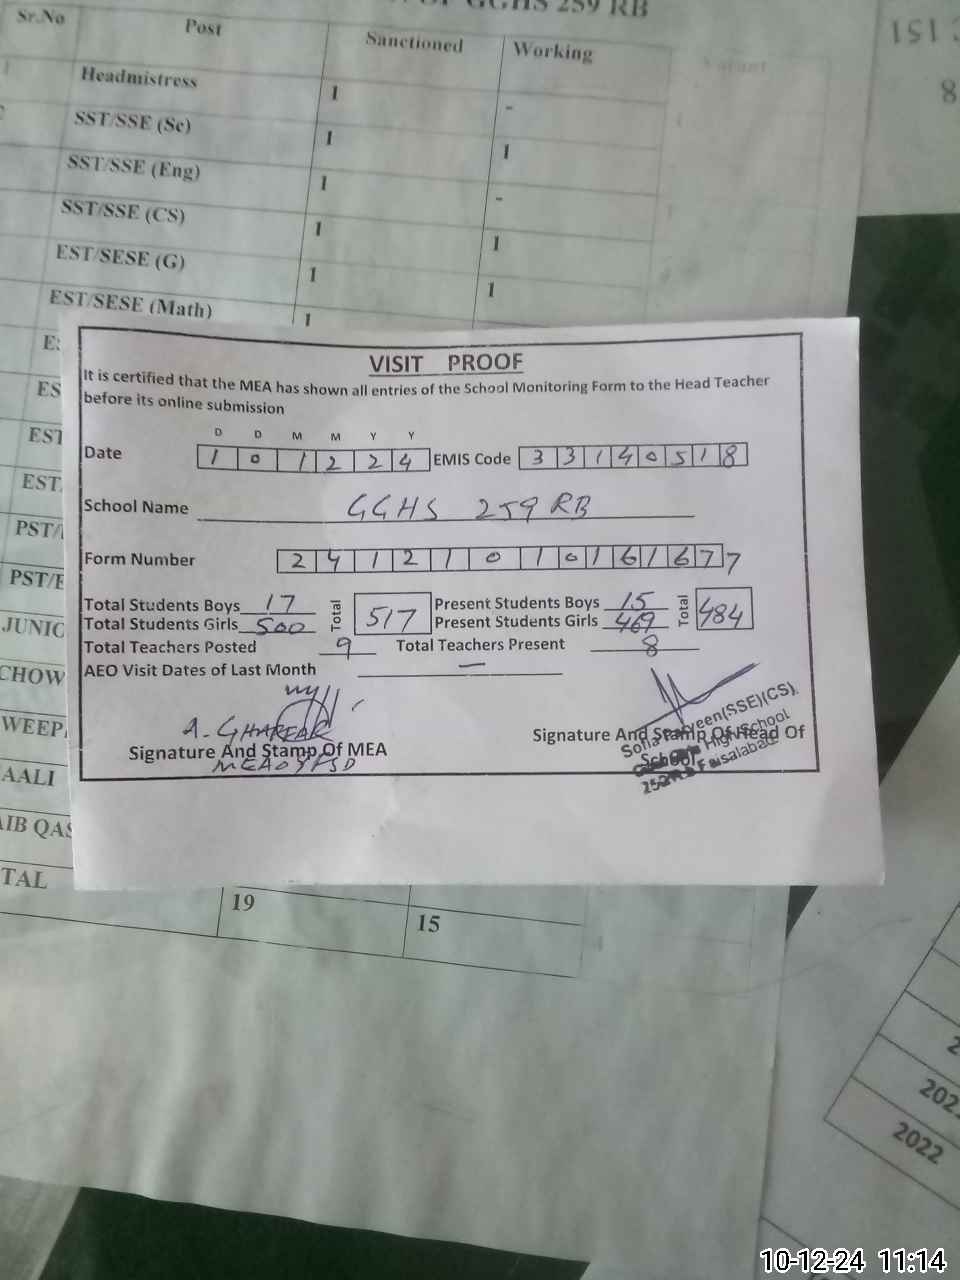 OF GGHS 259 RB
Sr.No Post Sanctioned Working Vacant
Headmistress 1 -
SST/SSE (Sc) 1 1
SST/SSE (Eng) 1 -
SST/SSE (CS) 1 1
EST/SESE (G) 1 1
EST/SESE (Math) 1
ES
EST
EST
PST/
PST/E
JUNIO
CHOW
WEEP
AALI
IB QAS
TAL 19 15
VISIT PROOF
It is certified that the MEA has shown all entries of the School Monitoring Form to the Head Teacher
before its online submission
D D M M Y Y
Date 1 0 1 2 2 4 EMIS Code 3 3 1 4 0 5 1 8
School Name GGHS 259 RB
Form Number 2 4 1 2 1 0 1 0 1 6 1 6 7 7
Total Students Boys 17 Total 517 Present Students Boys 15 Total 484
Total Students Girls 500 Present Students Girls 469
Total Teachers Posted 9 Total Teachers Present 8
AEO Visit Dates of Last Month —
A. GHAFFAR
Signature And Stamp Of MEA
Signature And Stamp Of Head Of
School
(SSE)(CS)
High School
Faisalabad
151
8
2
202
2022
10-12-24 11:14